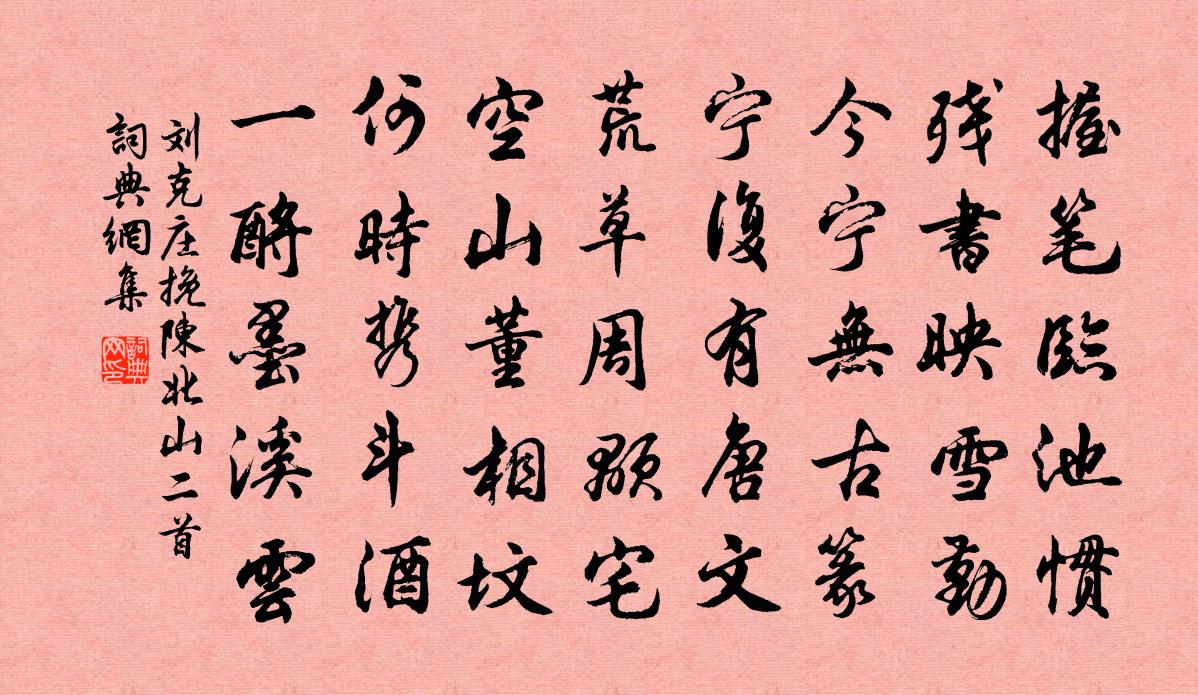 握笔臨池慣
残書映雪勤
今宁無古篆
宁復有唐文
荒草周顒宅
空山董相坟
何時携斗酒
一酹墨溪雲
刘克庄挽陳北山二首
詞典網集
詞典网印